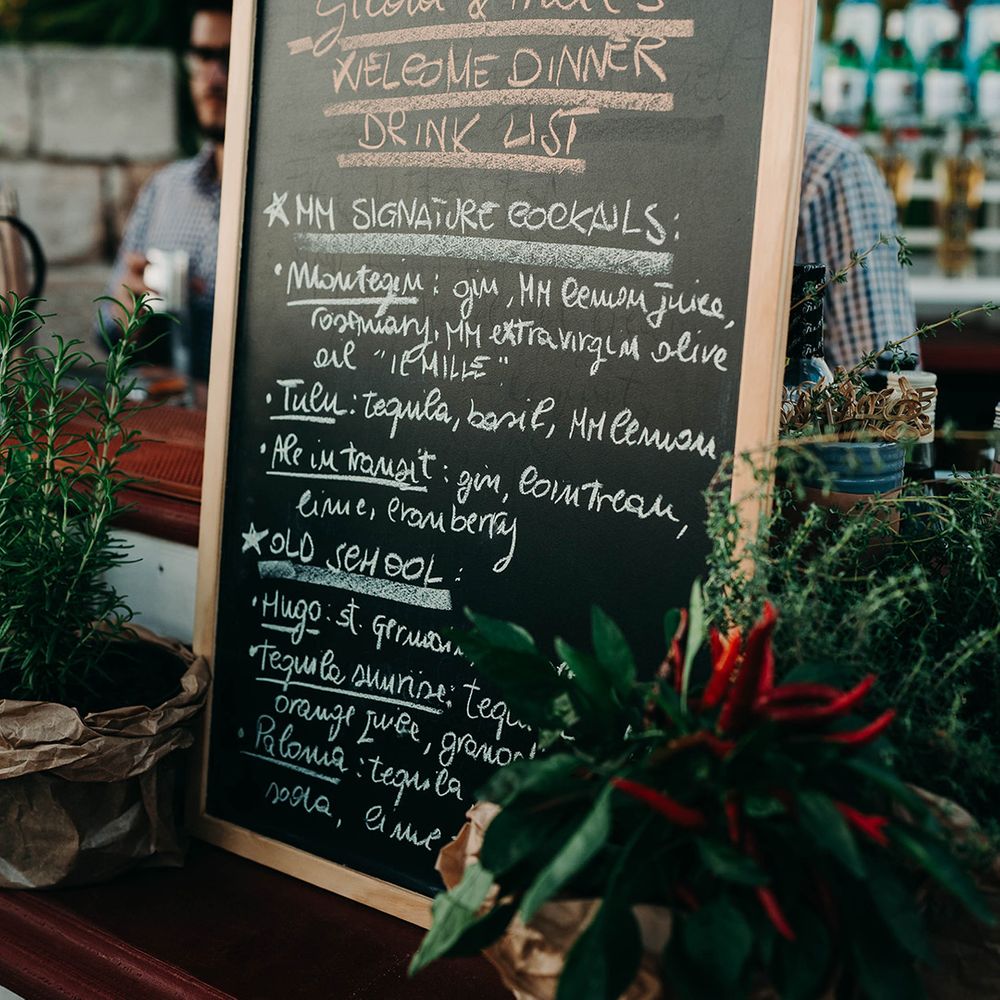 WELCOME DINNER
DRINK LIST
MM SIGNATURE COCKAILS:
Montegin: gin, MM lemon juice,
rosmary, MM extravirgin olive
oil "IL MILLE"
Tulu: tequila, basil, MM lemon
Ale in transit: gin, Cointreau,
lime, cranberry
OLD SCHOOL:
Hugo: st. Germain
Tequila sunrise: tequ
orange juice, granad
Paloma: tequila
soda, lime